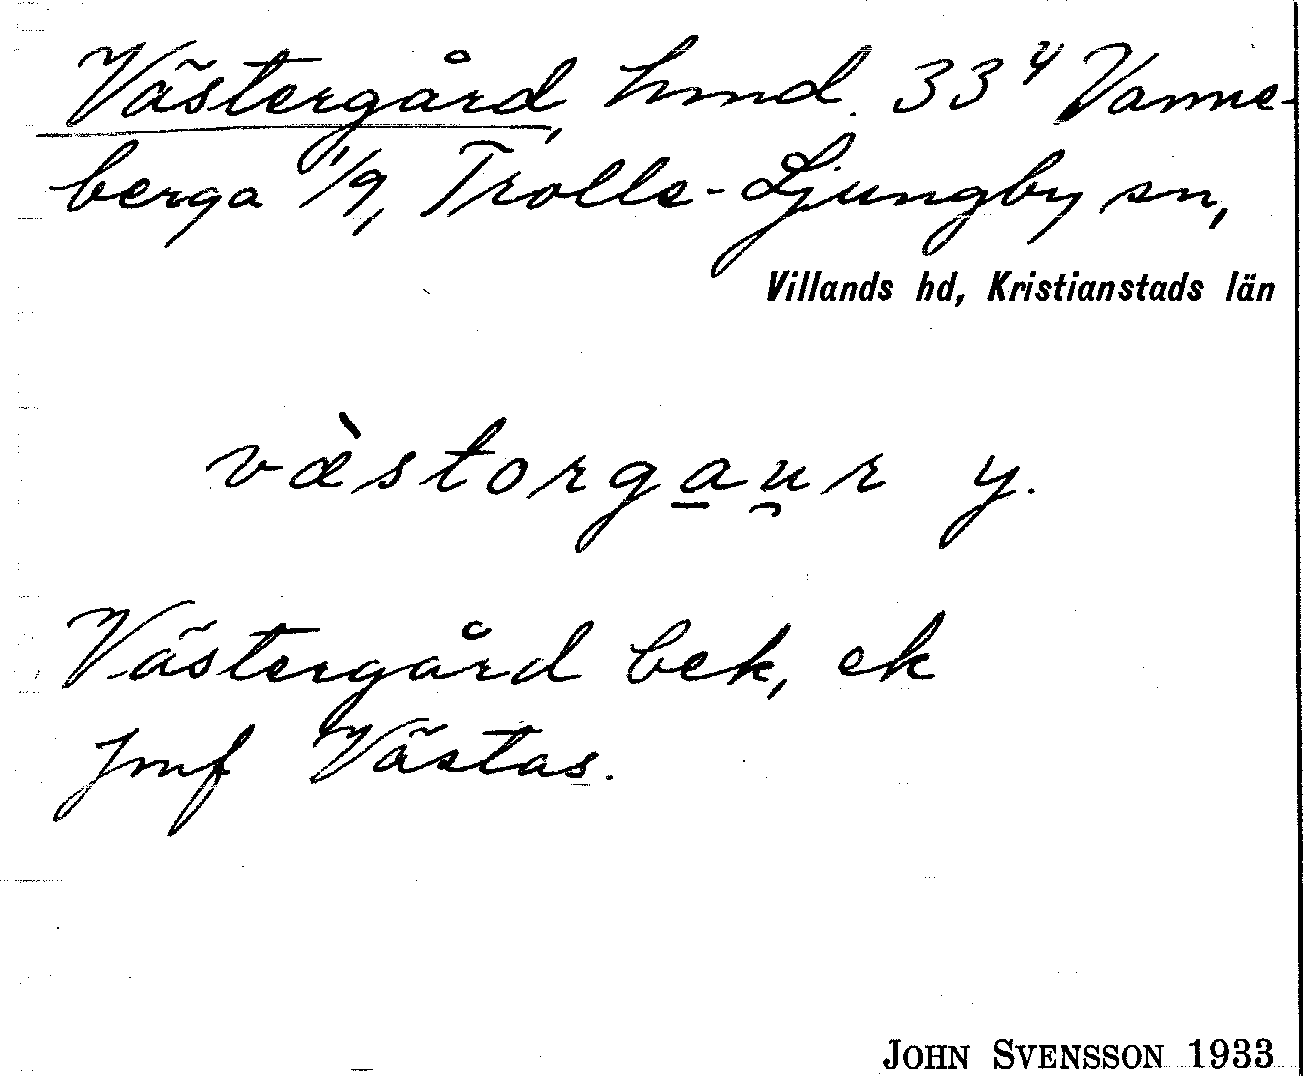 Västergård, hmd. 33⁴ Vanne-
berga 1/9, Trolle-Ljungby sn,
Villands hd, Kristianstads län
væ̀storga̱u̯r y.
Västergård bek, ek
Jmf Västas.
JOHN SVENSSON 1933